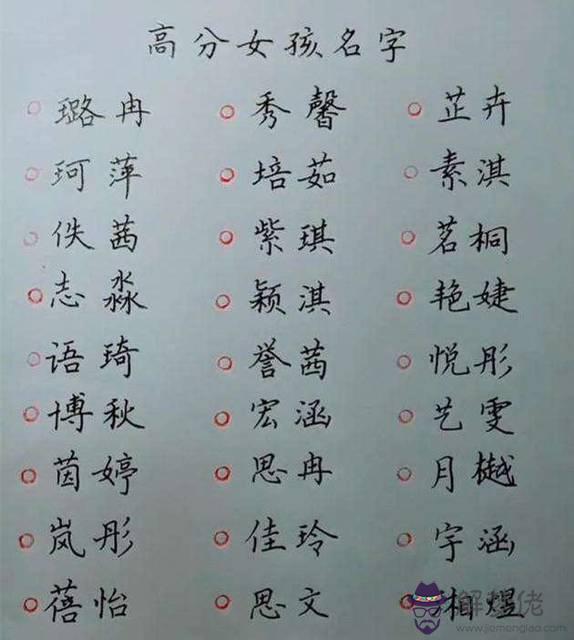 高分女孩名字
璐冉 秀馨 芷卉
珂萍 培茹 素淇
佚茜 紫琪 茗桐
志淼 颖淇 艳婕
语琦 誉茜 悦彤
博秋 宏涵 艺雯
茵婷 思冉 月樾
岚彤 佳玲 宇涵
蓓怡 思文 相煜
www.jiemengliao.com